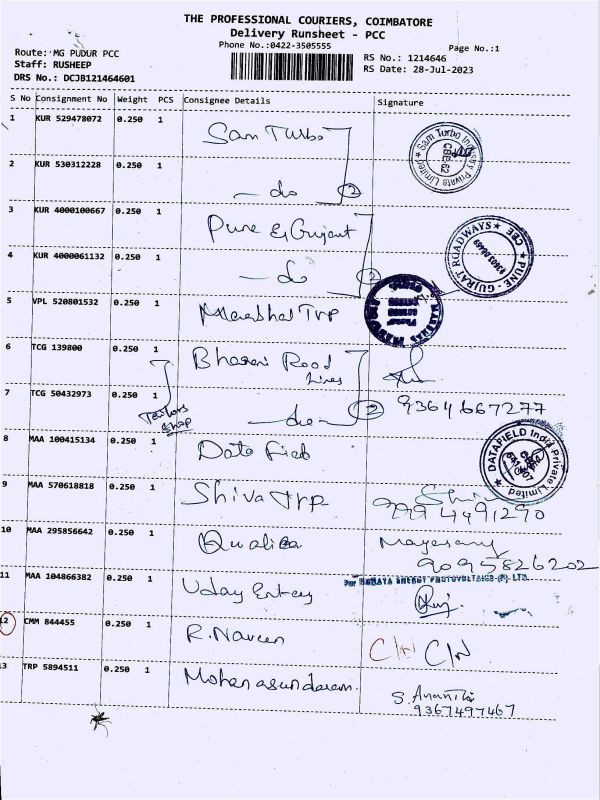 THE PROFESSIONAL COURIERS, COIMBATORE
Delivery Runsheet - PCC
Phone No.:0422-3505555
Page No.:1
Route: MG PUDUR PCC
Staff: RUSHEEP
DRS No.: DCJB121464601
RS No.: 1214646
RS Date: 28-Jul-2023
S No Consignment No Weight PCS Consignee Details Signature
1 KUR 529478072 0.250 1 Sam Turbo
Sam Turbo Industry Private Limited
CBE-62
2 KUR 530312228 0.250 1 - do 2
3 KUR 4000100667 0.250 1 Pune & Gujarat
PUNE - GUJRAT ROADWAYS
CBE
4 KUR 4000061132 0.250 1 - do 2
5 VPL 520801532 0.250 1 Trp
6 TCG 139800 0.250 1 Bharani Road
Lines
7 TCG 50432973 0.250 1 - do - 2
9364667277
8 MAA 100415134 0.250 1 Data Field
DATAFIELD India Private Limited
9 MAA 570618818 0.250 1 Shiva Trp
10 MAA 295856642 0.250 1
9095826202
11 MAA 104866382 0.250 1 Uday Energy
For ENERGY PHOTOVOLTAICS (P) LTD.
12 CMM 844455 0.250 1 R. Naveen C/N C/N
13 TRP 5894511 0.250 1 Mohanasundaram
9367497467